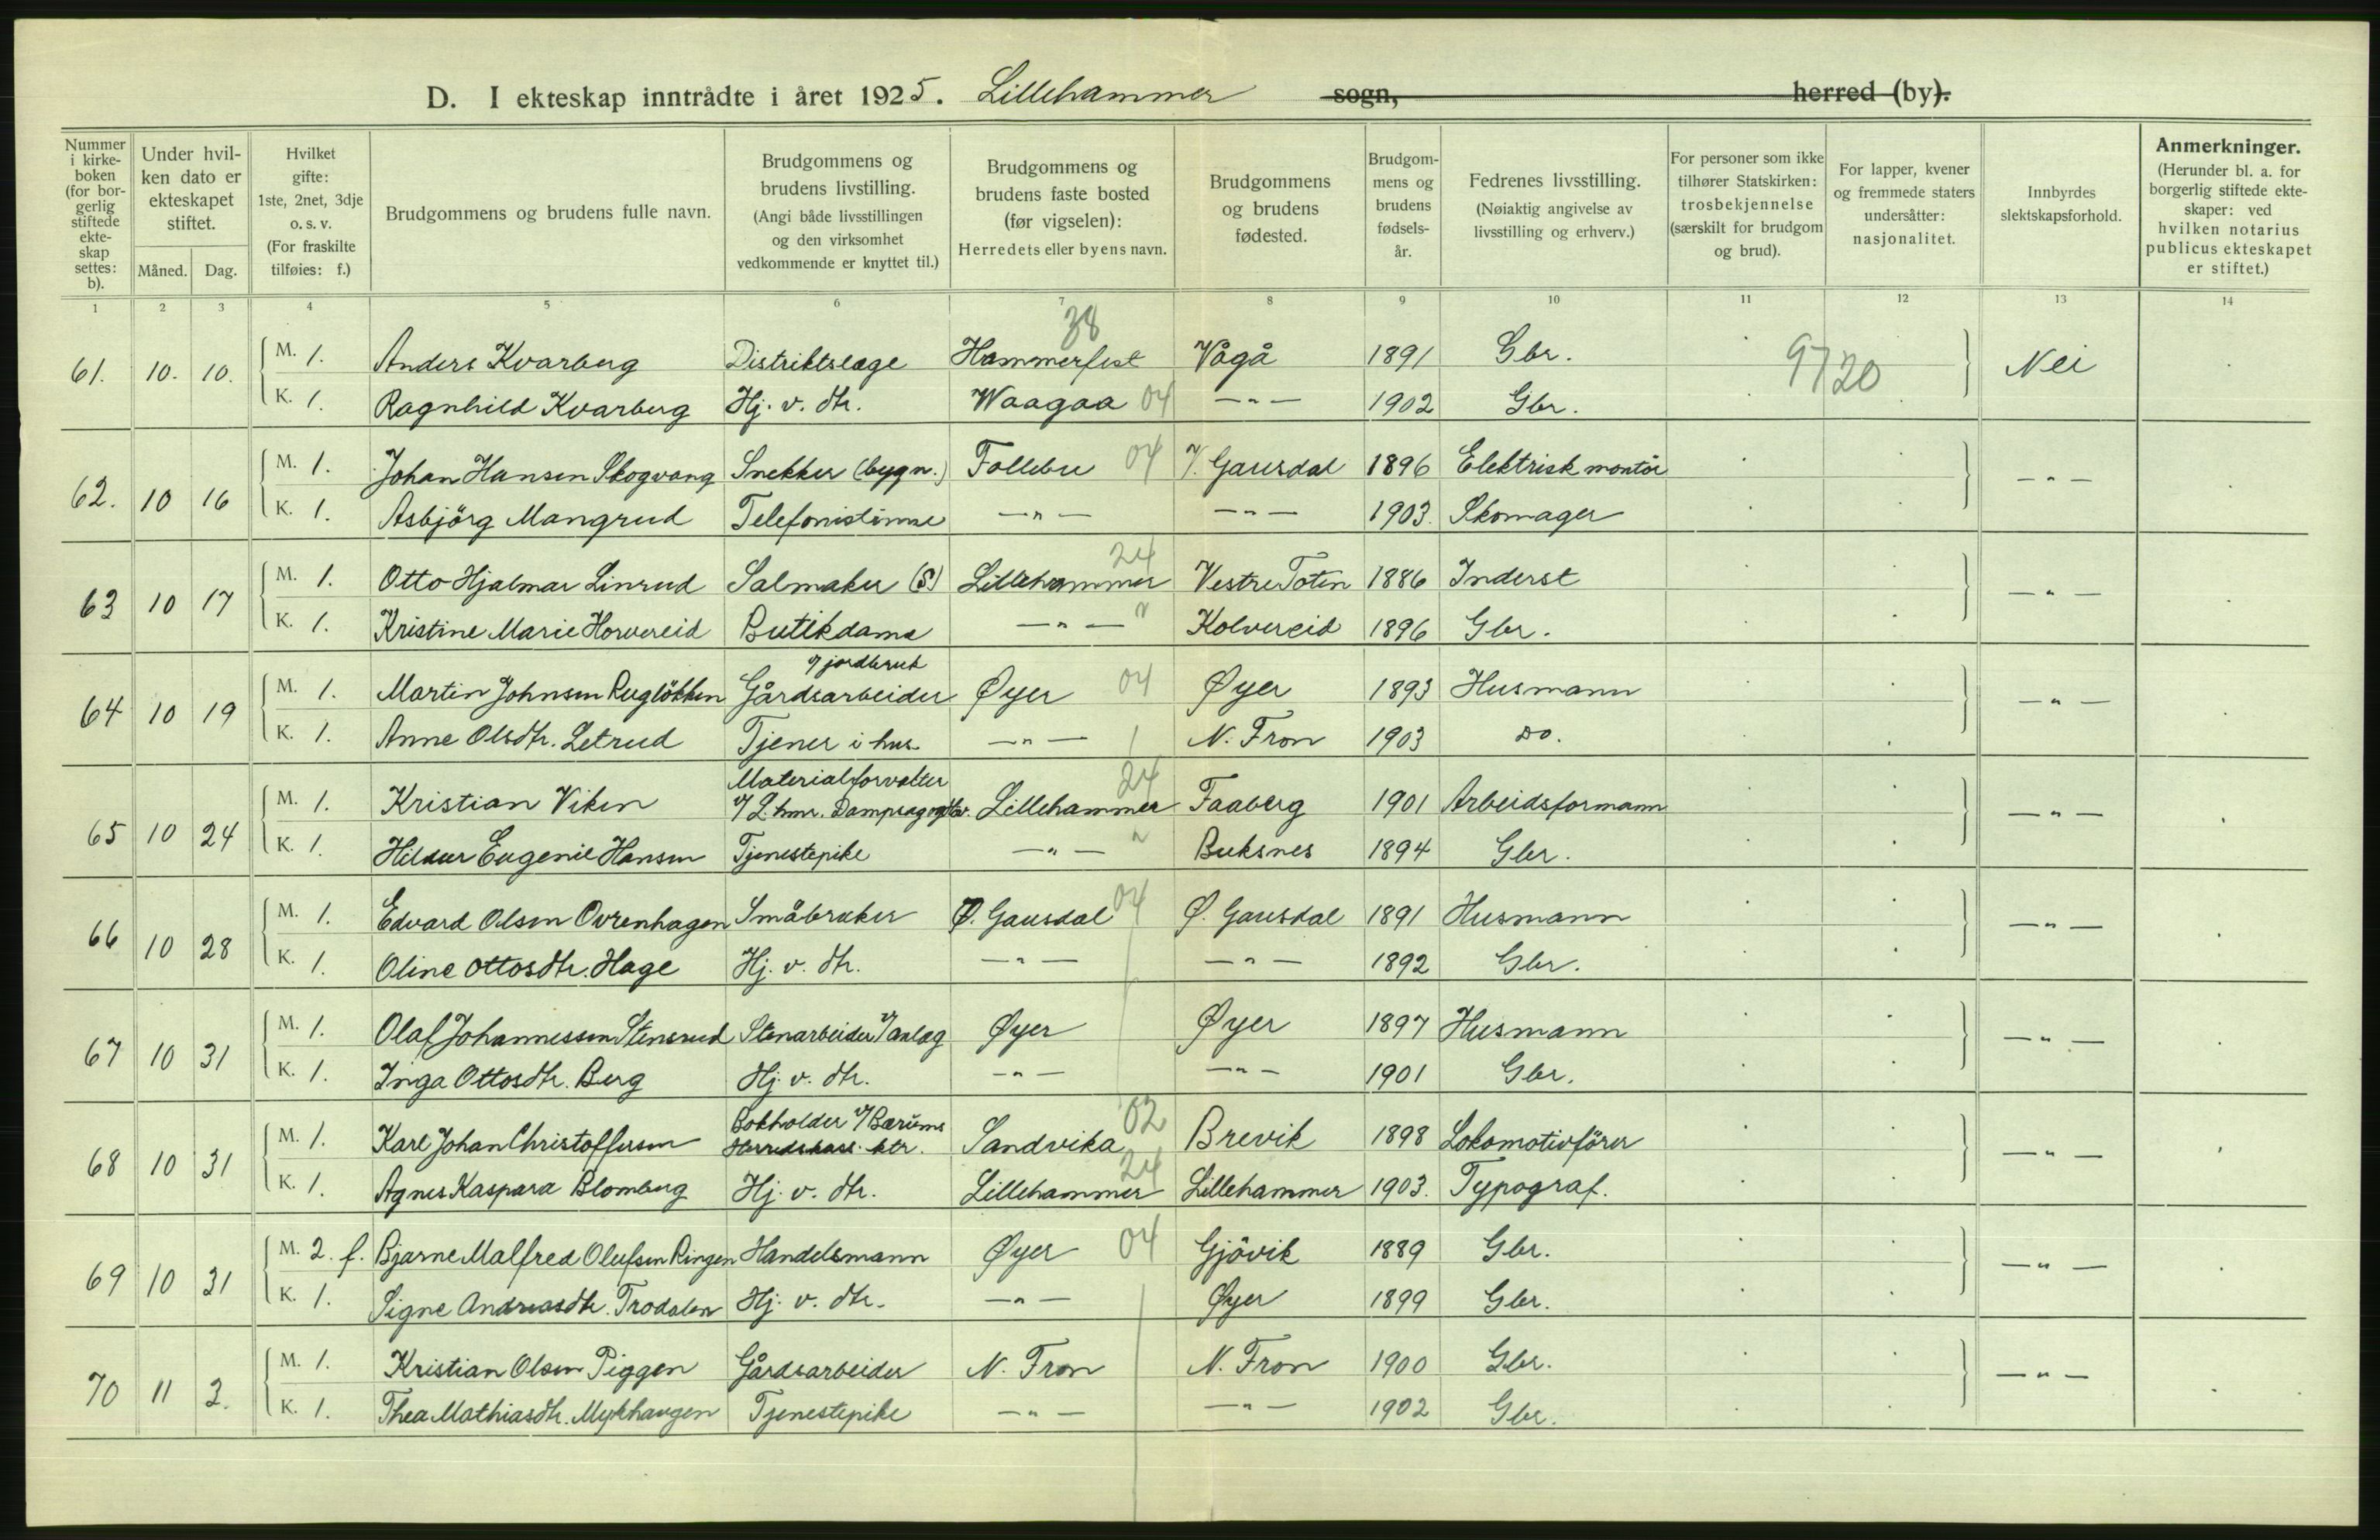 D. I ekteskap inntrådte i året 1925. Lillehammer sogn, herred (by).
Nummer i kirke-boken (for bor-gerlig stiftede ekte-skap settes: b).
Under hvil-ken dato er ekteskapet stiftet.
Måned. Dag.
Hvilket gifte: 1ste, 2net, 3dje o. s. v. (For fraskilte tilføies: f.)
Brudgommens og brudens fulle navn.
Brudgommens og brudens livstilling. (Angi både livsstillingen og den virksomhet vedkommende er knyttet til.)
Brudgommens og brudens faste bosted (før vigselen): Herredets eller byens navn.
Brudgommens og brudens fødested.
Brudgom-mens og brudens fødsels-år.
Fedrenes livsstilling. (Nøiaktig angivelse av livsstilling og erhverv.)
For personer som ikke tilhører Statskirken: trosbekjennelse (særskilt for brudgom og brud).
For lapper, kvener og fremmede staters undersåtter: nasjonalitet.
Innbyrdes slektskapsforhold.
Anmerkninger. (Herunder bl. a. for borgerlig stiftede ekte-skaper: ved hvilken notarius publicus ekteskapet er stiftet.)
1 2 3 4 5 6 7 8 9 10 11 12 13 14
38
61. 10. 10. M. 1. Anders Kvarberg Distriktslæge Hammerfest Vågå 1891 Gbr. 9720 Nei
K. 1. Ragnhild Kvarberg Hj. v. dtr. Waagaa 04 — " — 1902 Gbr.
62. 10 16 M. 1. Johan Hansen Skogvang Snekker (bygn.) Follebu 04 V. Gausdal 1896 Elektrisk montör — " —
K. 1. Asbjörg Mangrud Telefonistinne — " — — " — 1903. Skomager
24
63 10 17 M. 1. Otto Hjalmar Linrud Salmaker (S) Lillehammer Vestre Toten 1886 Inderst — " —
K. 1. Kristine Marie Horvereid Butikdame — " — " Kolvereid 1896 Gbr.
v/ jordbruk
64 10 19 M. 1. Martin Johnsen Ruglökken Gårdsarbeider Øyer 04 Øyer 1893 Husmann — " —
K. 1. Anne Olsdtr. Letrud Tjener i hus — " — N. Fron 1903 Do.
Materialforvalter 24
65 10 24 M. 1. Kristian Viken v/ L.hmr. Dampsag Lillehammer Faaberg 1901 Arbeidsformann — " —
K. 1. Hildur Eugenie Hansen Tjenestepike — " — " Buksnes 1894 Gbr.
66 10 28 M. 1. Edvard Olsen Ovrenhagen Småbruker Ø. Gausdal 04 Ø. Gausdal 1891 Husmann — " —
K. 1. Oline Ottosdtr. Hage Hj. v. dtr. — " — — " — 1892 Gbr.
67 10 31 M. 1. Olaf Johannessen Stensrud Stenarbeider v/ anlæg Øyer Øyer 1897 Husmann — " —
K. 1. Inga Ottosdtr. Berg Hj. v. dtr. — " — — " — 1901 Gbr.
Bokholder v/ Bærums 02
68 10 31 M. 1. Karl Johan Christoffersen Herredskass. ktr. Sandvika Brevik 1898 Lokomotivförer — " —
K. 1. Agnes Kaspara Blomberg Hj. v. dtr. Lillehammer 24 Lillehammer 1903. Typograf.
69 10 31 M. 2. f. Bjarne Malfred Olufsen Ringen Handelsmann Øyer 04 Gjövik 1889 Gbr. — " —
K. 1. Signe Andreasdtr. Trodalen Hj. v. dtr. — " — Øyer 1899 Gbr.
70 11 2. M. 1. Kristian Olsen Piggen Gårdsarbeider N. Fron N. Fron 1900 Gbr. — " —
K. 1. Thea Mathiasdtr. Mykhaugen Tjenestepike — " — — " — 1902 Gbr.